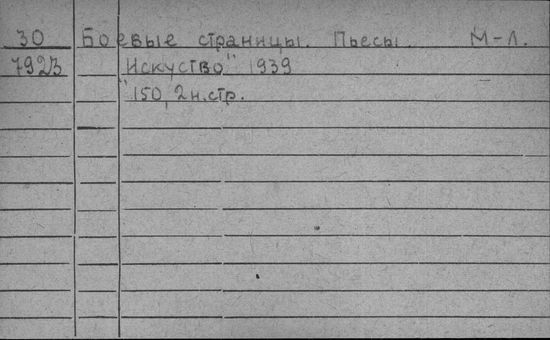 30 Боевые страницы. Пьесы. М-Л.
7923 Искуство" 1939
"150, 2н.стр.